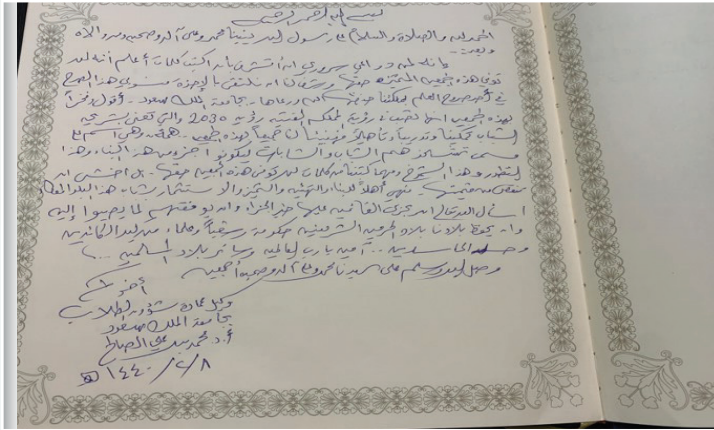 بسم الله الرحمن الرحيم
الحمد لله والصلاة والسلام على رسول الله نبينا محمد وعلى آله وصحبه ومن والاه
وبعد..
فإنه لمن دواعي سروري أن أتشرف بأن أكتب كلمات أعلم أنها لن
توفي هذه الجمعية حقها ويشرفنا أن نلتقي بالإخوة منسوبي هذا الصرح
في أحد صروح العلم بمملكتنا حفظها الله ورعاها. جامعة الملك سعود. أقول
لهذه الجمعية إنها تحقيق رؤية المملكة الفتية رؤية 2030 والتي تعنى بشريحة
الشباب تمكيناً وتدريباً وتأهيلاً فهنيئاً لنا جميعاً بهذه الجمعية. همة وهي اسم على
مسمى تستلهم همم الشباب والشابات ليكونوا جزء من هذا البناء وهذا
التطور وهذا ومهما كتبنا من كلمات لن نوفي هذه الجمعية حقها. بل أخشى أن
ننقص من قيمتها. فهي أهلاً للبناء والتهيئة والتميز والاستثمار بشباب هذا البلد المعطاء
أسأل الله تعالى أن يجزي القائمين عليها خير الجزاء وأن يوفقهم لما يصبوا إليه
وأن يحفظ بلادنا بلاد الحرمين الشريفين حكومة وشعباً من كيد الكائدين
وحسد الحاسدين .. آمين يا رب العالمين وسائر بلاد المسلمين ..
وصل الله وسلم على سيدنا محمد وعلى آله وصحبه أجمعين
أخوكم
وكيل عمادة شؤون الطلاب
بجامعة الملك سعود
أ.د محمد بن علي الصالح
١٤٤٠/٢/٨ هـ